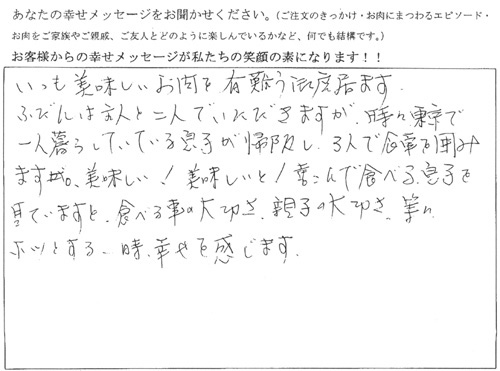 あなたの幸せメッセージをお聞かせください。(ご注文のきっかけ・お肉にまつわるエピソード・
お肉をご家族やご親戚、ご友人とどのように楽しんでいるかなど、何でも結構です。)
お客様からの幸せメッセージが私たちの笑顔の素になります!!
いつも美味しいお肉を有難う御座居ます.
ふだんは主人と二人でいただきますが、時々東京で
一人暮らしている息子が帰阪し、3人で食卓を囲み
ます。美味しい!美味しいと!喜こんで食べる息子を
見ていますと、食べる事の大切さ、親子の大切さ、
ホッとする、時、幸せを感じます.